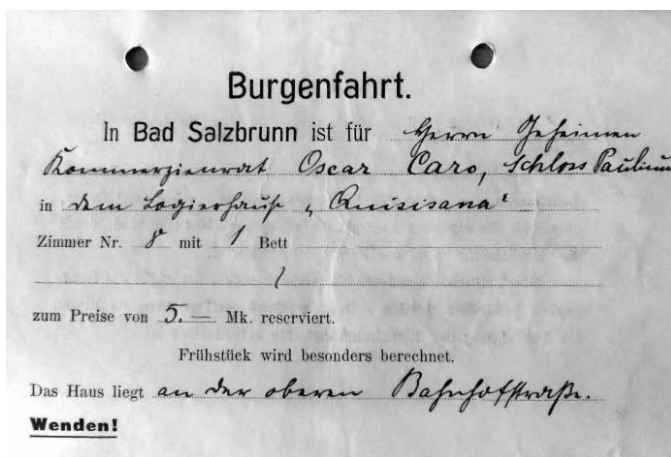 Burgenfahrt.
In Bad Salzbrunn ist für Herrn Geheimen
Kommerzienrat Oscar Caro, Schloss Paulinum
in dem Logierhause „Quisisana"
Zimmer Nr. 8 mit 1 Bett
zum Preise von 5.— Mk. reserviert.
Frühstück wird besonders berechnet.
Das Haus liegt an der oberen Bahnhofstraße.
Wenden!